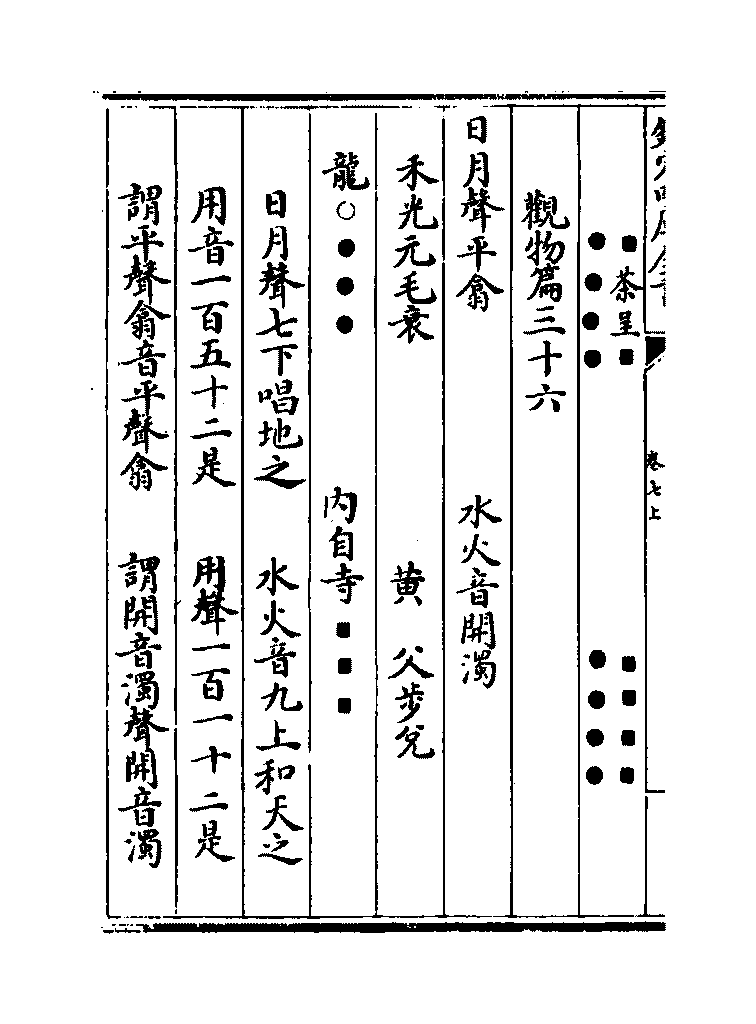 欽定四庫全書
卷七上
■茶呈■　■■■■
●●●●　●●●●
觀物篇三十六
日月聲平翕　水火音開濁
禾光元毛衰　黄　父步兌
龍○●●●　内自寺■■■
日月聲七下唱地之　水火音九上和天之
用音一百五十二是　用聲一百一十二是
謂平聲翕音平聲翕　謂開音濁聲開音濁